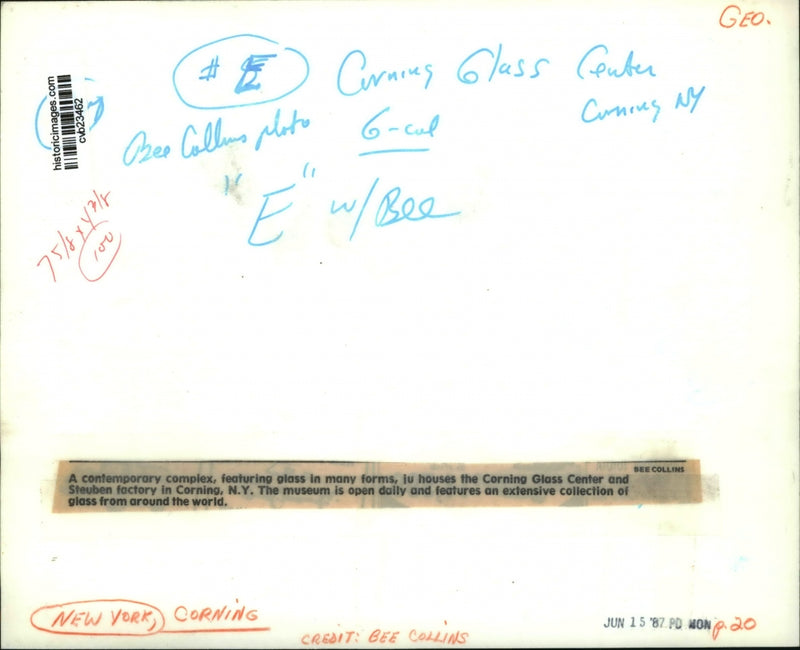 GEO.
# E Corning Glass Center
Corning NY
historicimages.com
cvb23462
Bee Collins photo 6-col
"E" w/Bee
7 5/8 x 4 7/8
100
BEE COLLINS
A contemporary complex, featuring glass in many forms, ju houses the Corning Glass Center and
Steuben factory in Corning, N.Y. The museum is open daily and features an extensive collection of
glass from around the world.
NEW YORK, CORNING
JUN 15 '87 PD MON p.20
CREDIT: BEE COLLINS